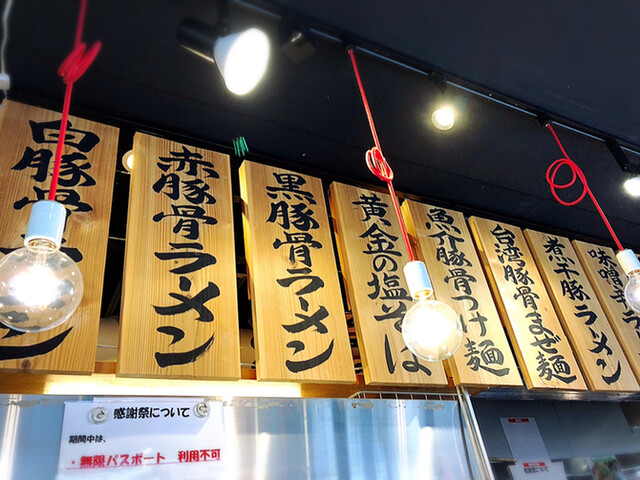 白豚骨ラーメン
赤豚骨ラーメン
黒豚骨ラーメン
黄金の塩そば
魚介豚骨つけ麺
台湾豚骨まぜ麺
煮干豚ラーメン
味噌
感謝祭について
期間中は、
・無限パスポート 利用不可
感謝祭